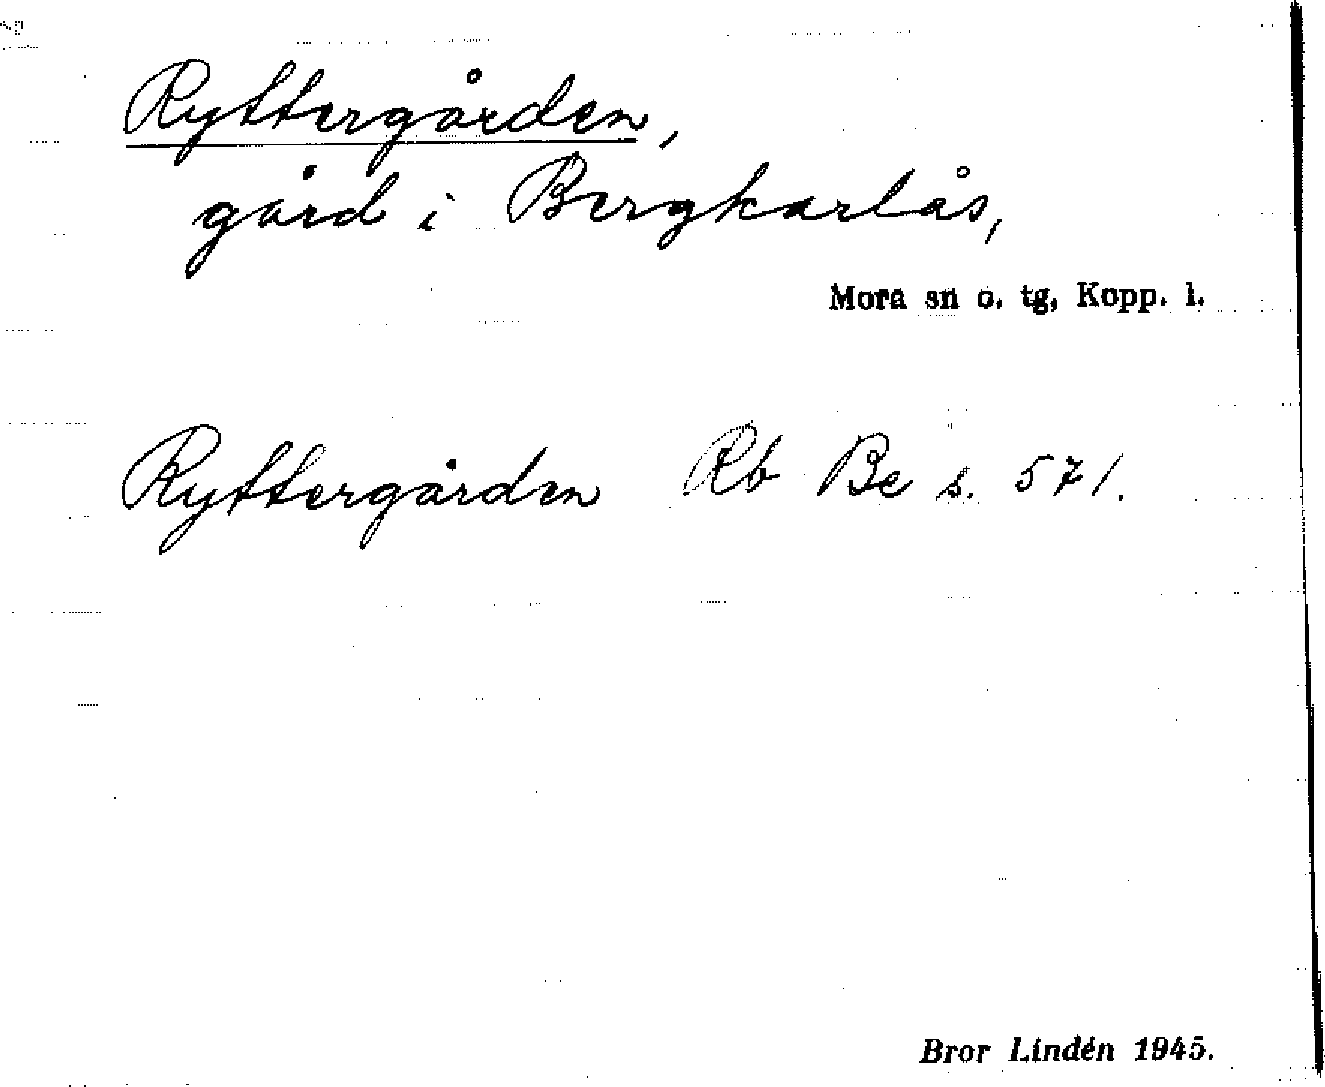 Ryttergården,
gård i Bergkarlås,
Mora sn o. tg, Kopp. l.
Ryttergården Rb Be s. 571.
Bror Lindén 1945.